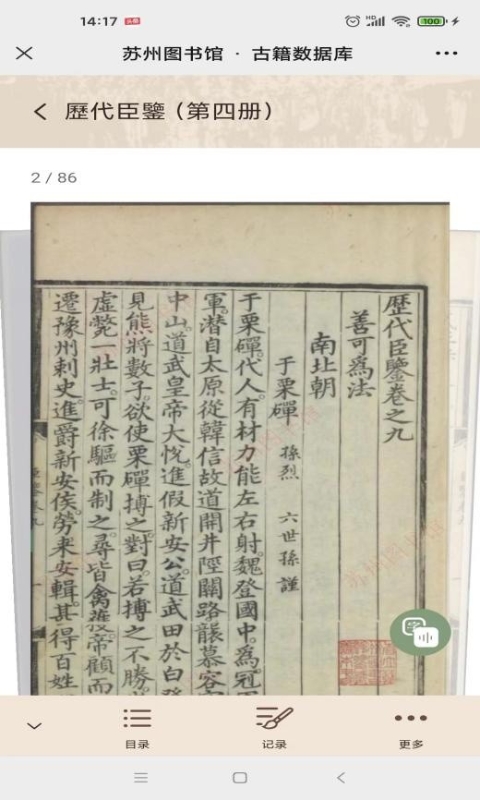 14:17
100
苏州图书馆 · 古籍数据库
歷代臣鑒（第四册）
2 / 86
歷代臣鑒卷之九
善可為法
南北朝
于栗磾 孫烈 六世孫謹
于栗磾代人有材力能左右射魏登國中為冠軍
軍潛自太原從韓信故道開井陘關路襲慕容
中山道武皇帝大悅進假新安公道武田於白登
見熊將數子欲使栗磾搏之對曰若搏之不勝
虛斃一壯士可徐驅而制之尋皆禽獲帝顧而
遷豫州刺史進爵新安侯勞來安輯甚得百姓
目录
记录
更多